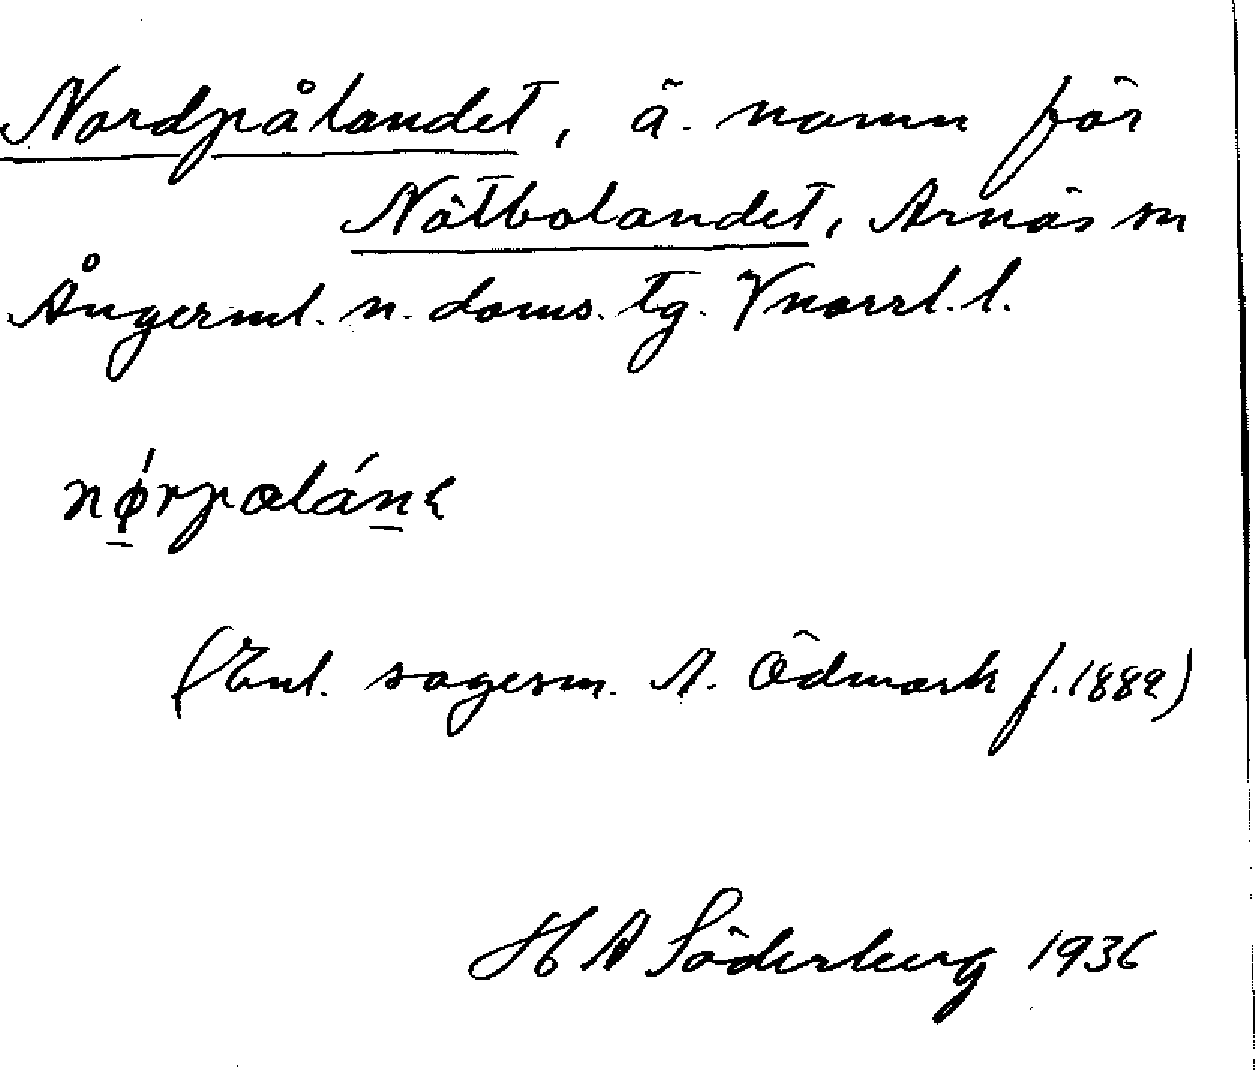 Nordpålandet, ä. namn för
Nötbolandet, Arnäs sn
Ångerml. n. doms. tg. Vnorrl. l.
nǿ̱rpalán̲ε
(Enl. sagesm. A. Ödmark f. 1882)
H A Söderberg 1936